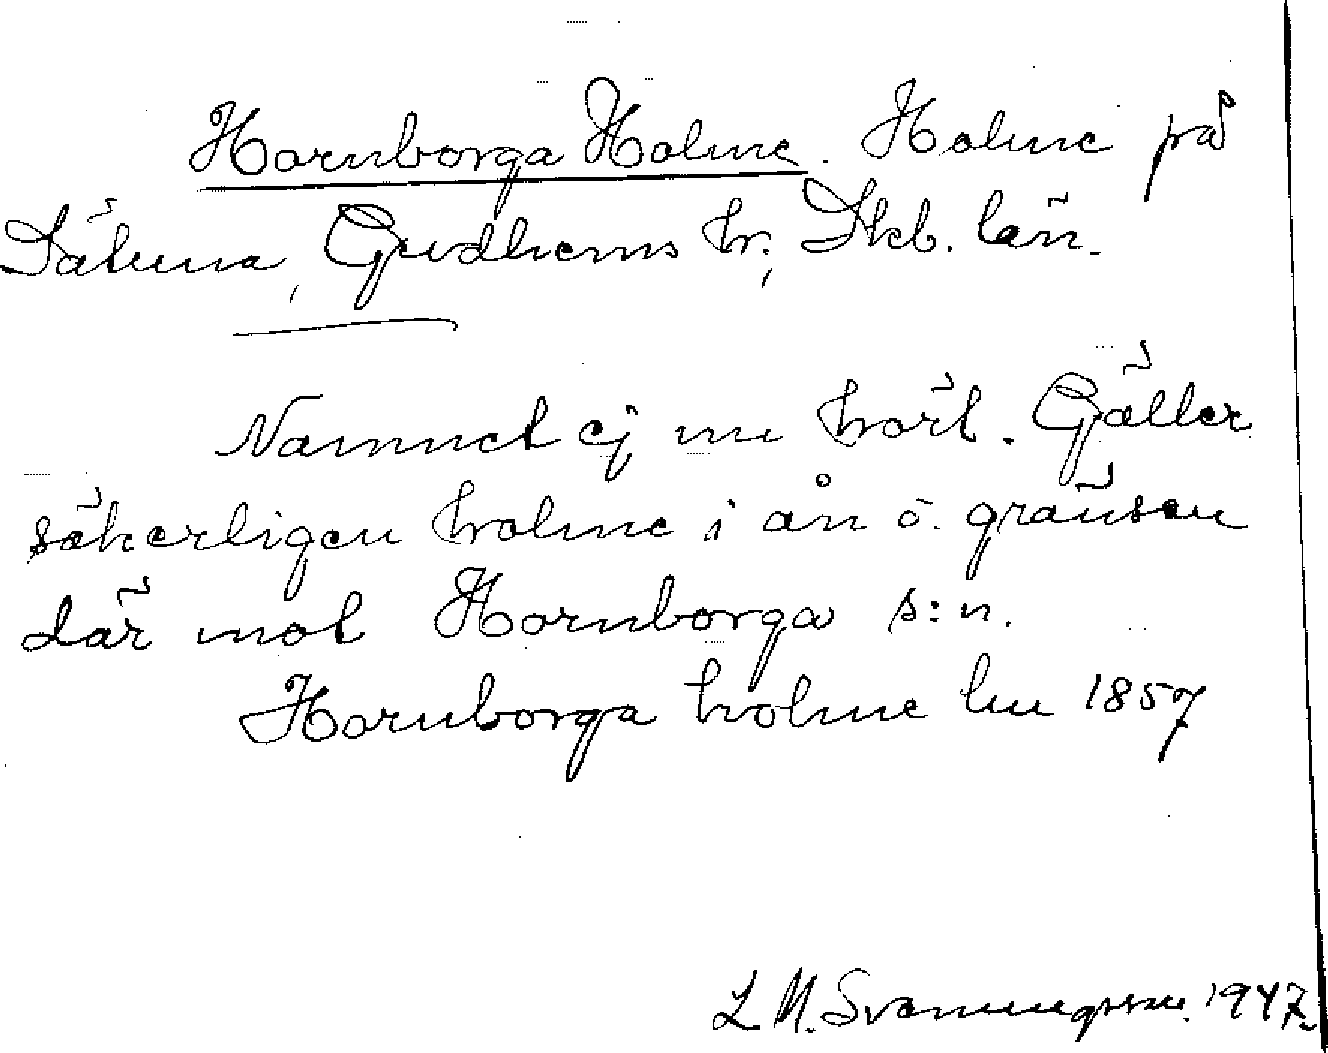 Hornborga Holme. Holme på
Sätuna, Gudhems hr, Skb. län.
Namnet ej nu hört. Gäller
säkerligen holme i ån ö. gränsen
där mot Hornborga s:n.
Hornborga holme lm 1857
L M. Svanungsson. 1947.